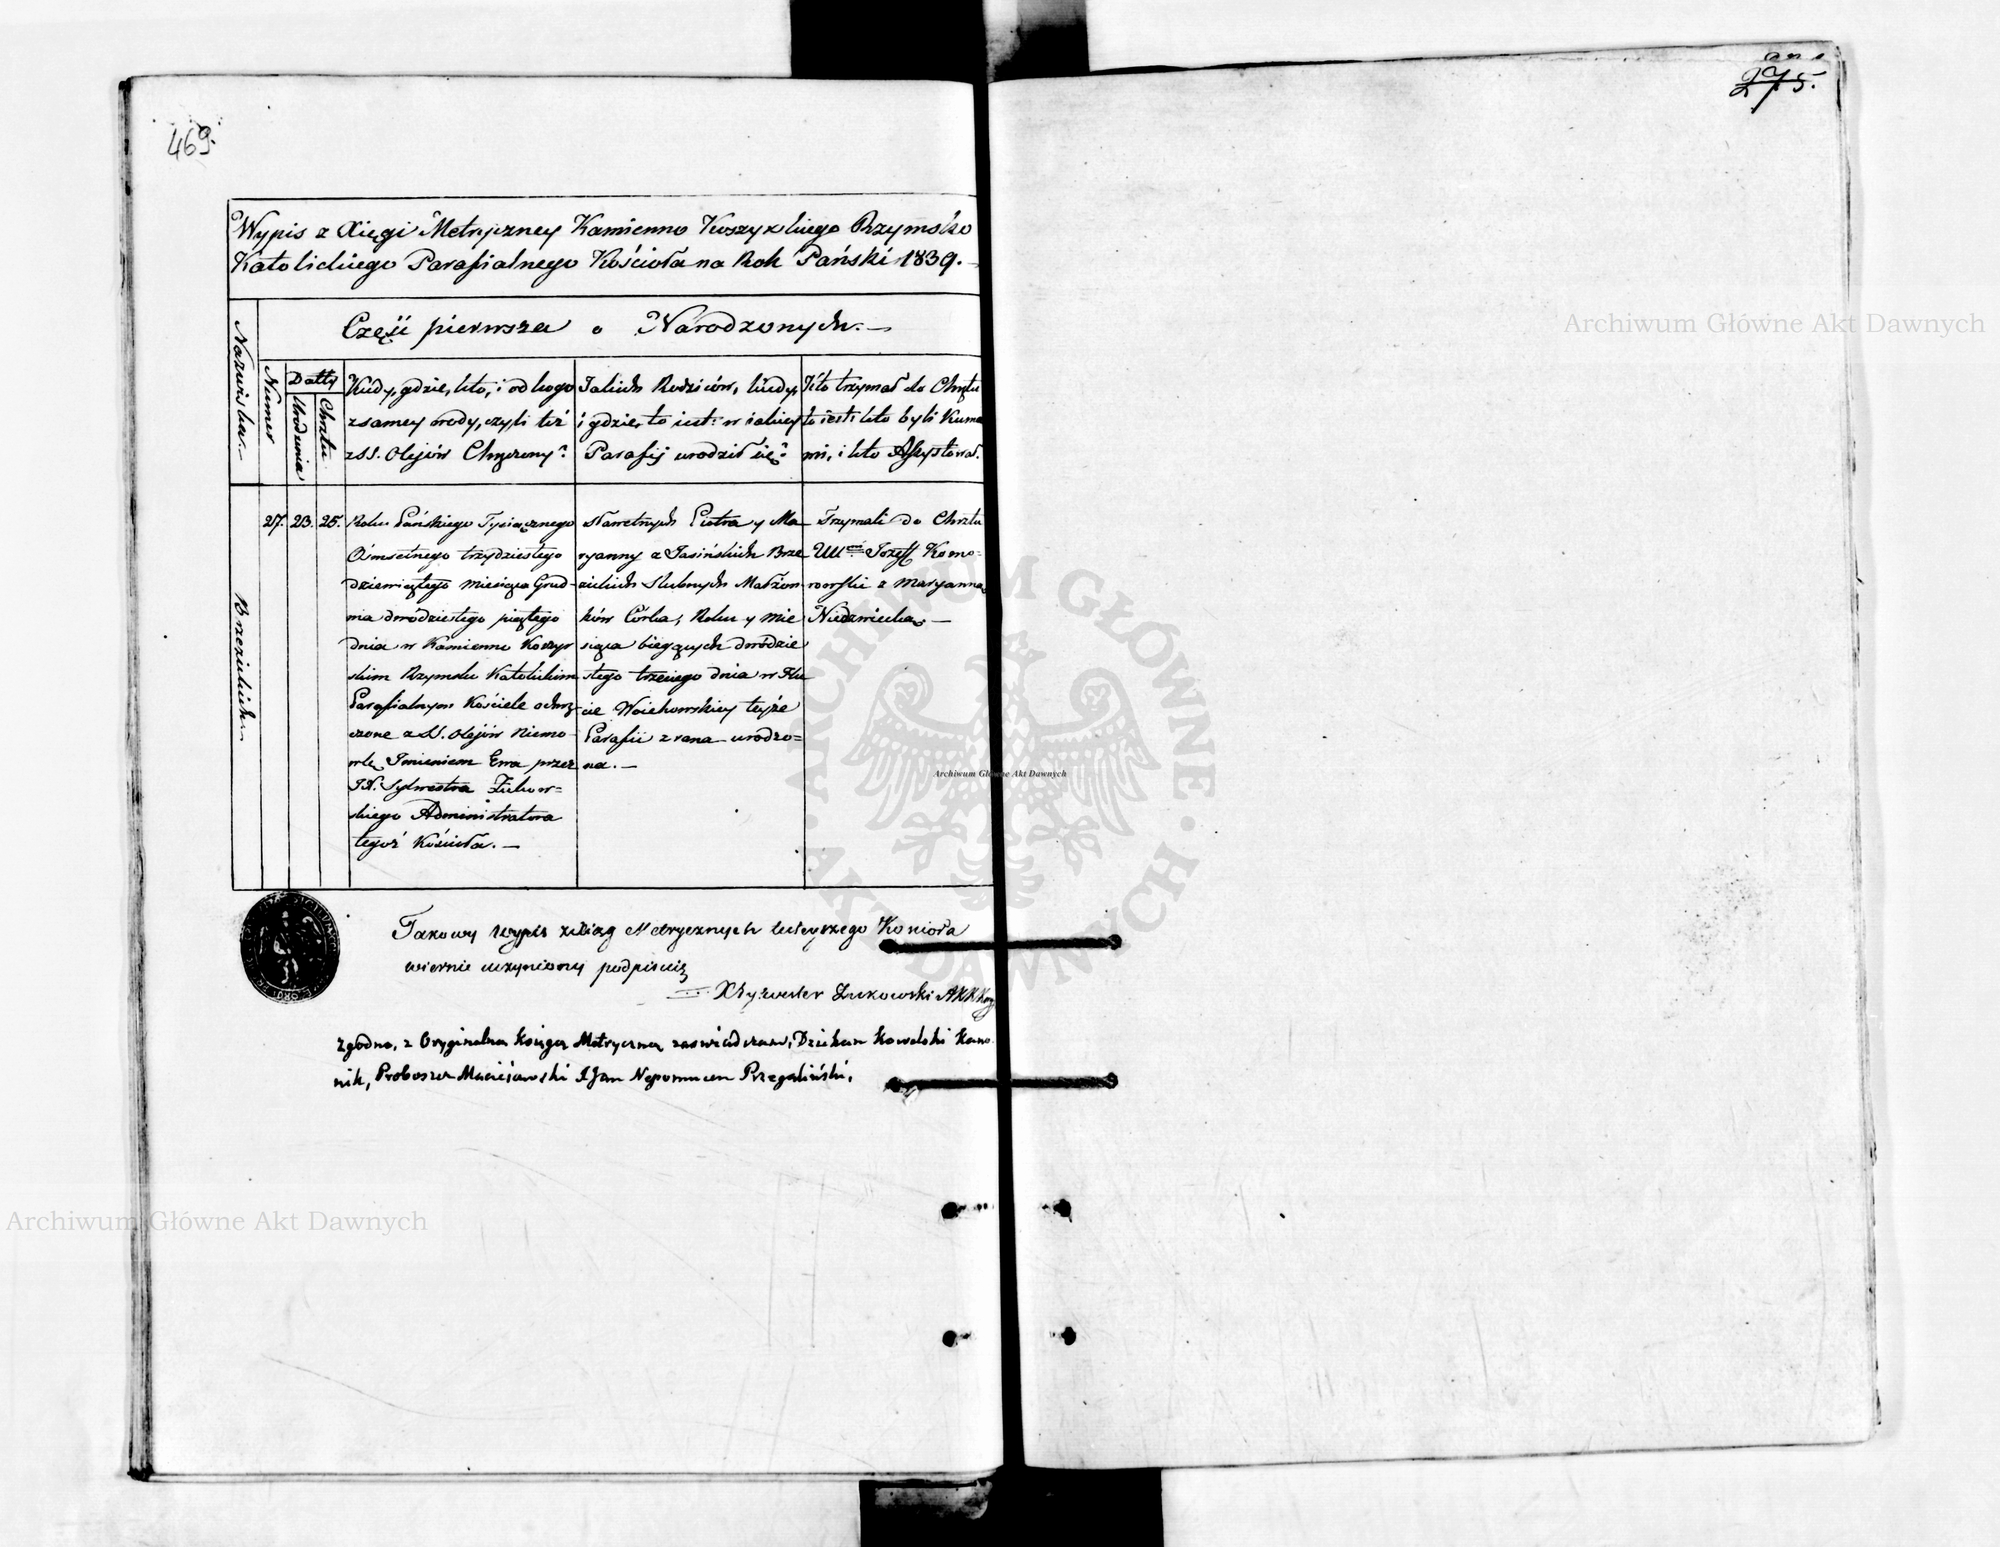 469.
275.
Wypis z Xięgi Metryczney Kamienno Koszyrskiego Rzymsko
Katolickiego Parafialnego Kościoła na Rok Pański 1839. –
Część pierwsza o Narodzonych. –
Nazwiska.
Numer
Datty
Urodzenia
Chrztu
Kiedy, gdzie, kto, i od kogo
z samey wody, czyli też
z SS. Olejów Chrzczony?
Jakich Rodziców, kiedy,
i gdzie, to iest: w iakiey
Parafij urodził się?
Kto trzymał do Chrztu
to iest: kto byli Kuma
mi, i kto Assystował.
Brzezickich
27. 23. 25.
Roku Pańskiego Tysiącznego
Ośmsetnego trzydziestego
dziewiątego miesiąca Grud-
nia dwódziestego piątego
dnia w Kamienno Koszyr
skim Rzymsko Katolickim
Parafialnym Kościele ochrz-
czone z SS. Olejów Niemo-
wlę Imieniem Ewa przez
JX. Sylwestra Żukow-
skiego Administratora
tegoż Kościoła. –
Sławetnych Piotra y Ma
ryanny z Jasińskich Brze
zickich Slubnych Małżon-
ków Córka, Roku y Mie
siąca bieżących dwódzie
stego trzeciego dnia w Hu
cie Woiehowskiey teyże
Parafii z rana urodzo=
na. –
Trzymali do Chrztu
Józeff Komo-
rowski z Maryanną
Niedzwiecką. –
Takowy wypis z Xiąg Metrycznych tuteyszego Kościoła
wiernie uczyniony podpisuię
X Sylwester Żukowski AKKKoszy
Zgodno, z Oryginalną Księgą Metryczną zaświadczam, Dziekan Kowelski Kano-
nik, Proboszcz Maciejowski X Jan Nepomucen Przegaliński,
Archiwum Główne Akt Dawnych
Archiwum Główne Akt Dawnych
Archiwum Główne Akt Dawnych
ARCHIWUM GŁÓWNE · AKT DAWNYCH ·